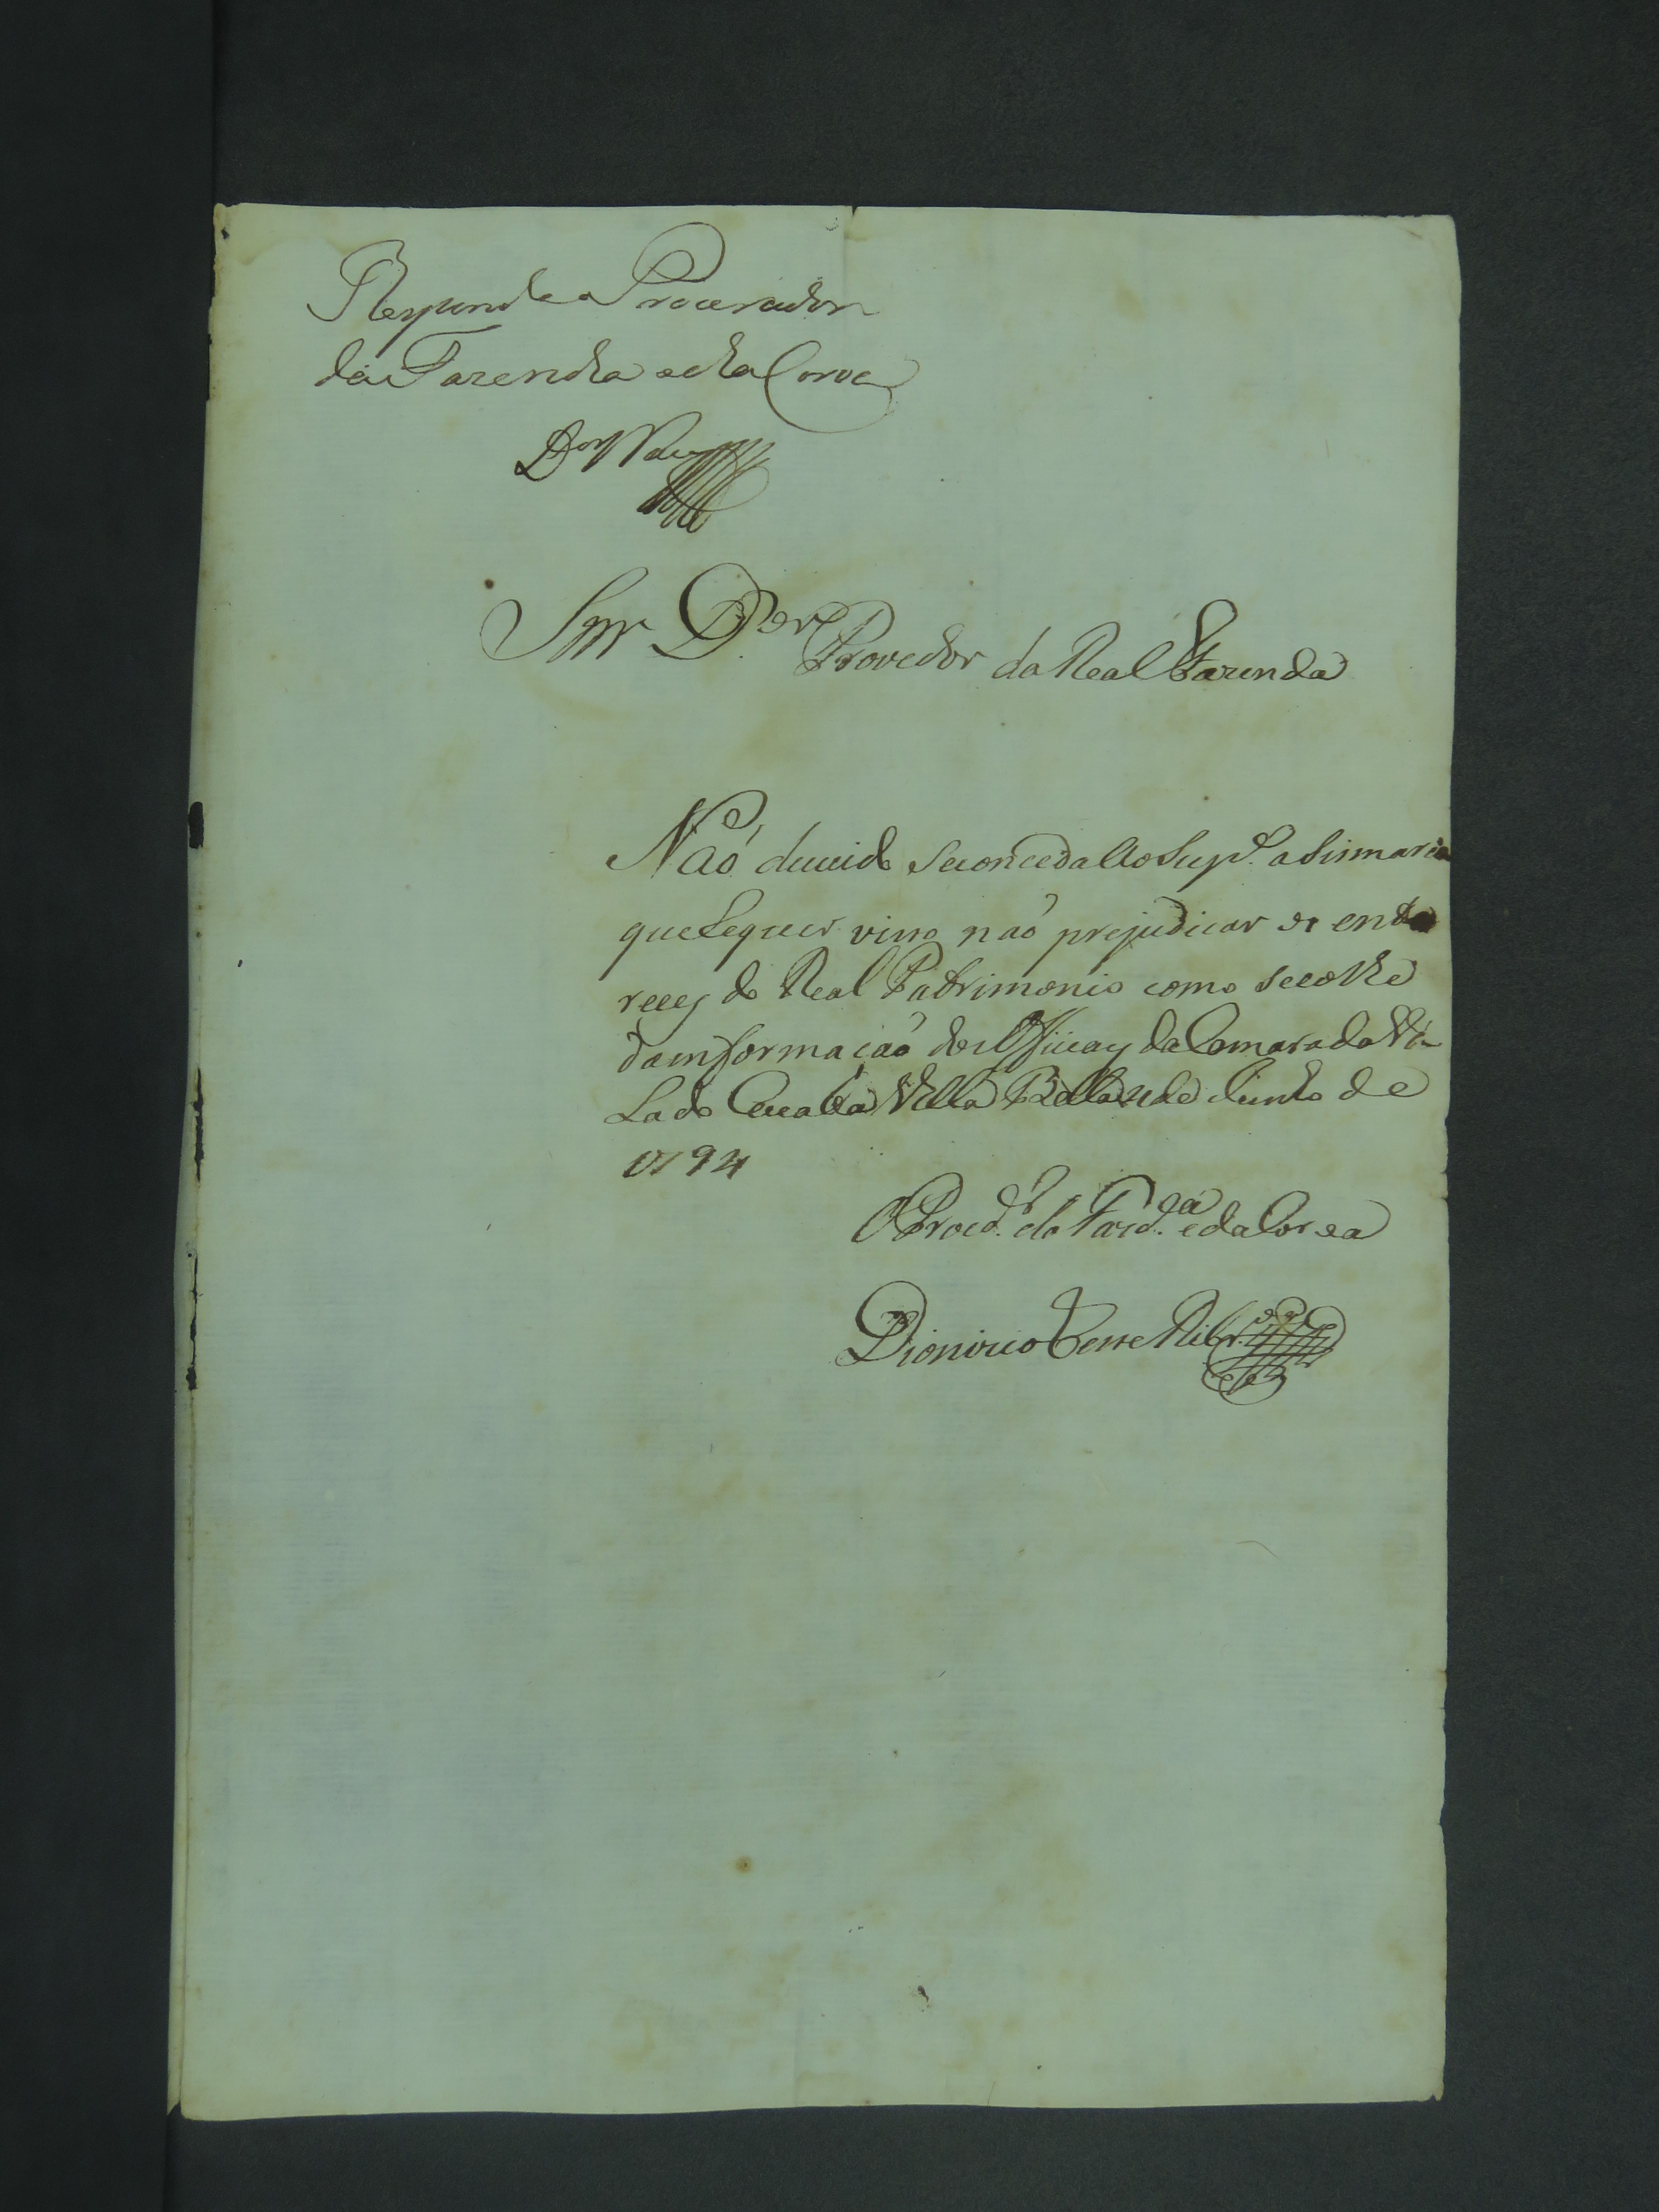 Responda o Procurador
da Fazenda e da Coroa
Snr D.or Provedor da Real Fazenda
Naõ duvido se conceda ao Sup.e a Sismaria
que Requer visto naõ prejudicar os ente
reces do Real Patrimonio como se colhe
da informaçaõ dos Officiaes da Camara da Vi-
la do Cuiabá Villa Bella de Junho de
1794
O Procd.r da Fazd.a e da Coroa
Dionizio Terre Ribr.o